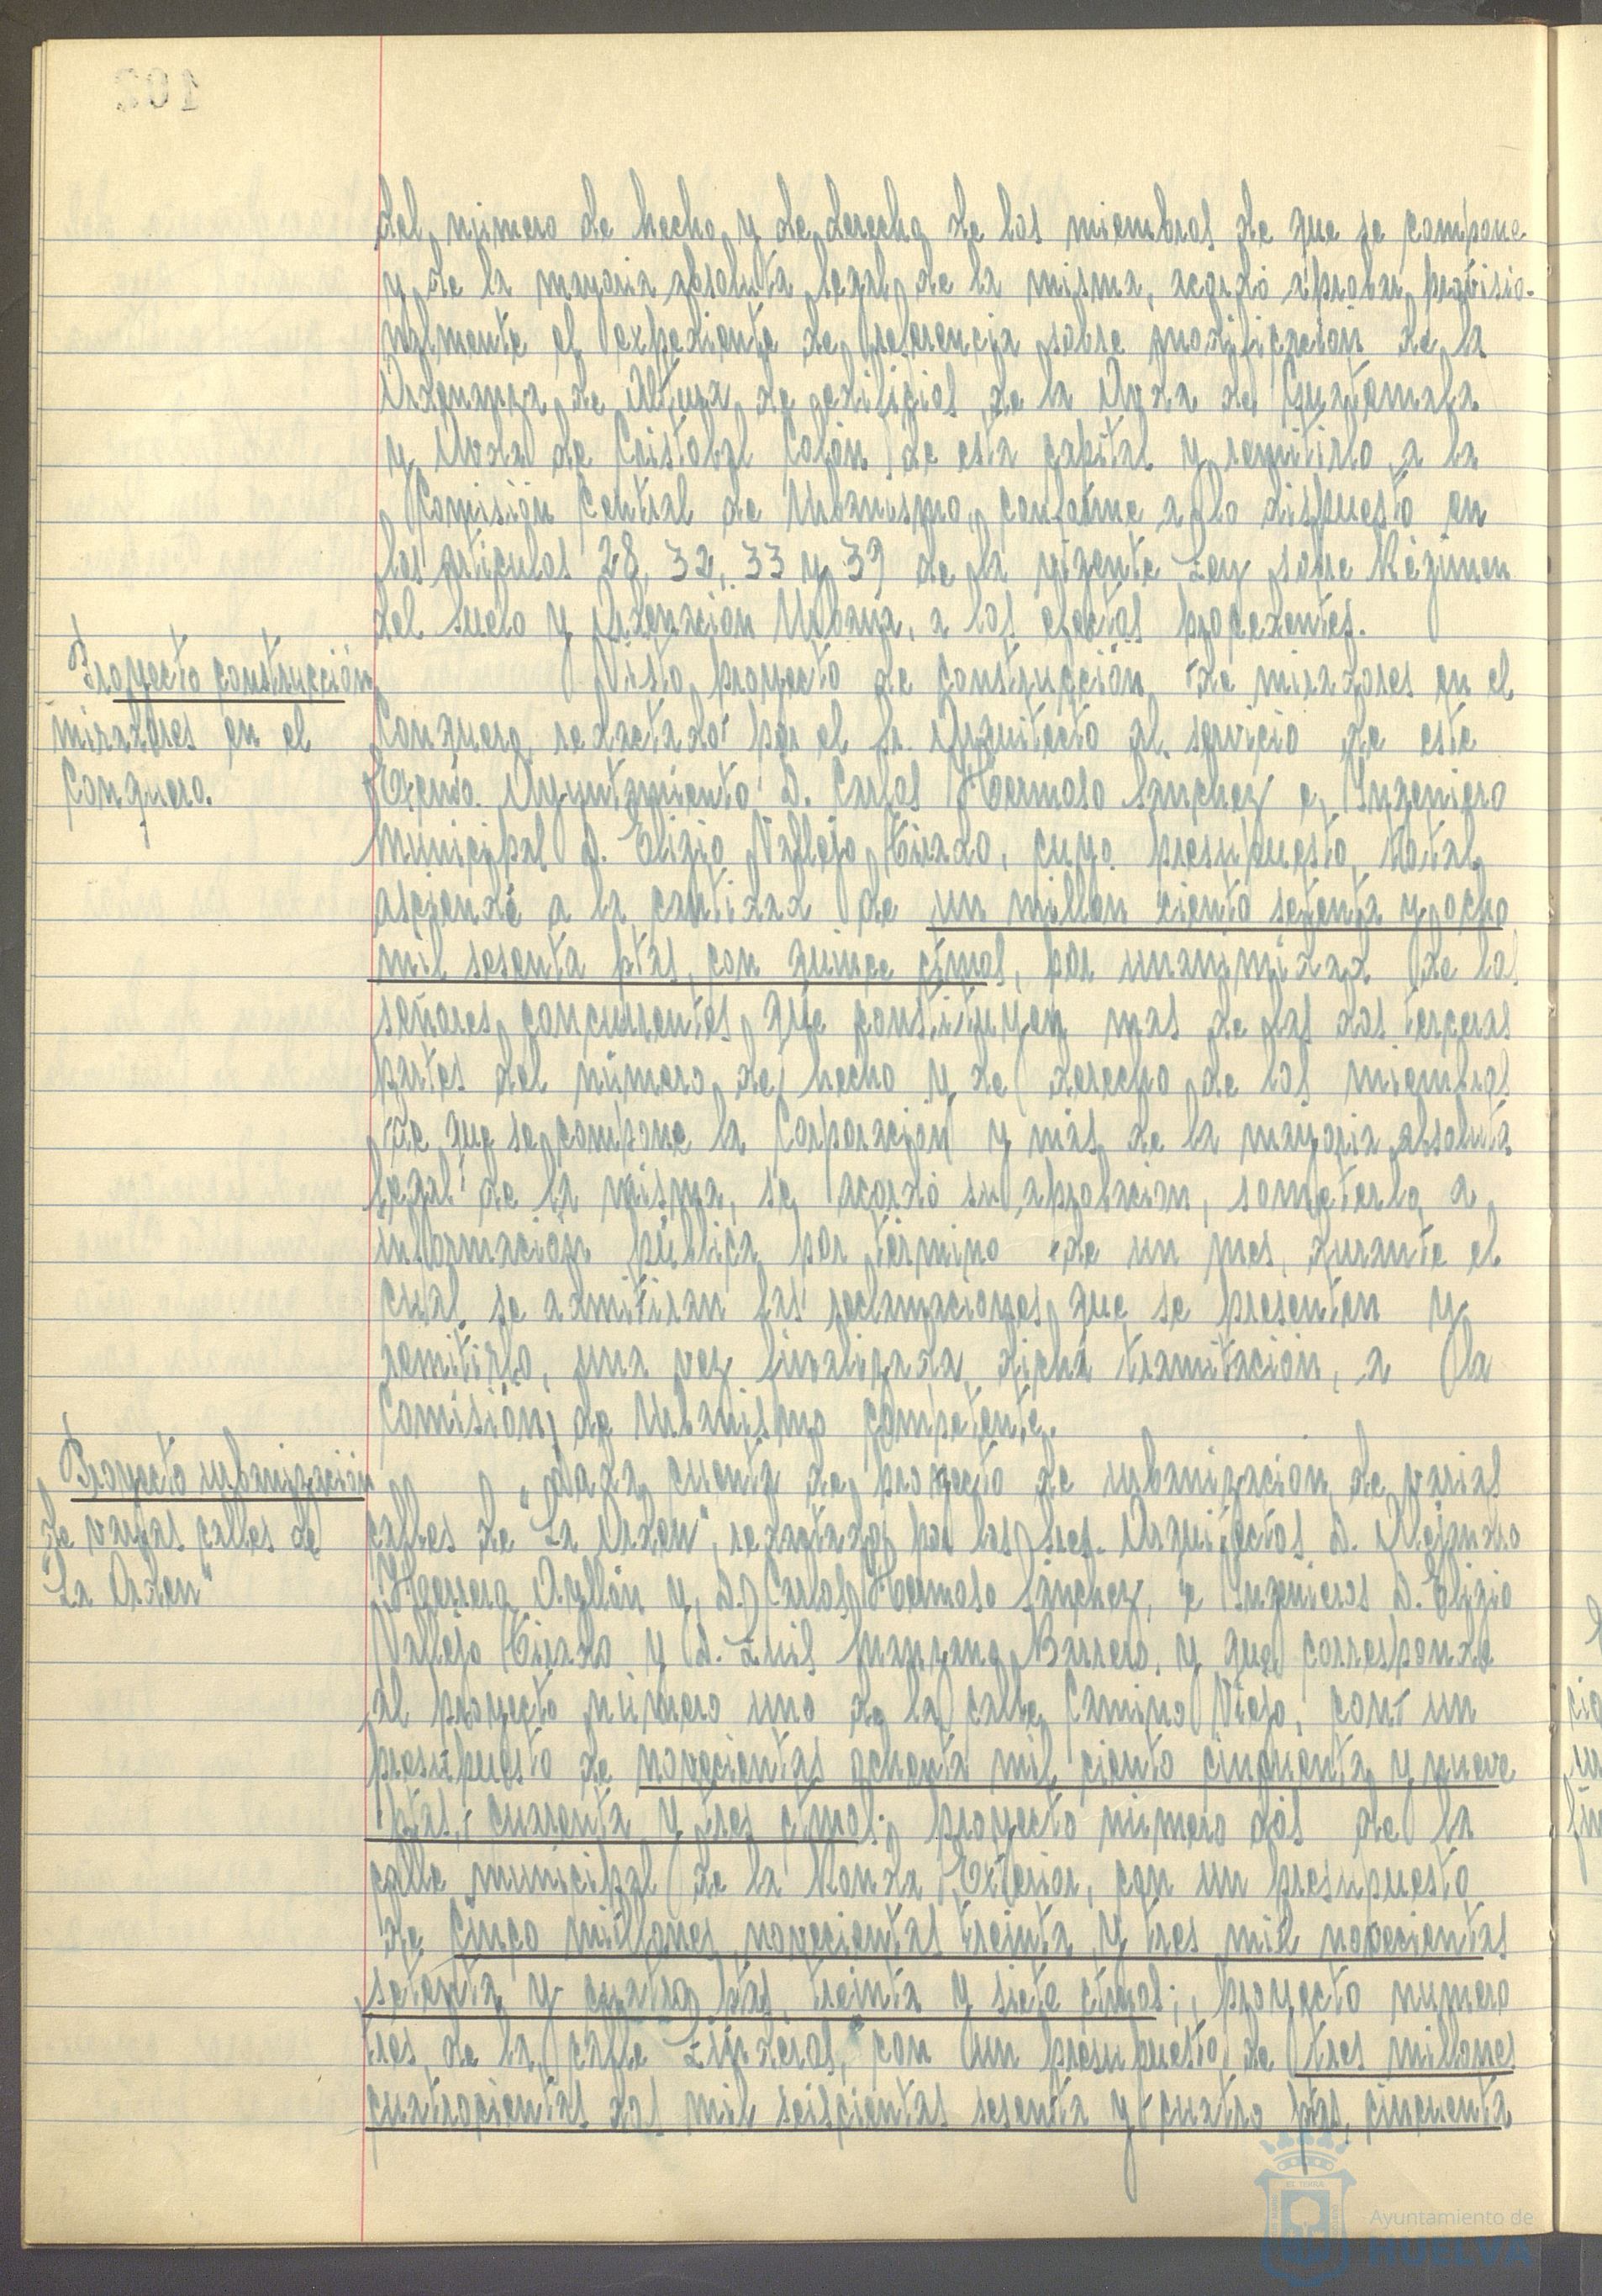 102
del número de hecho y de derecho de los miembros de que se compone
y de la mayoria absoluta legal de la misma, acordó aprobar provisio-
nalmente el expediente de referencia sobre modificación de la
Ordenanza de Altura de edificios de la Avda de Guatemala
y Avda de Cristobal Colón de esta capital y remitirlo a la
Comisión Central de Urbanismo, conforme a lo dispuesto en
los articulos 28, 32, 33 y 39 de la vigente Ley sobre Régimen
del Suelo y Ordenación Urbana, a los efectos procedentes.
Proyecto construcción
miradores en el
Conquero.
Visto proyecto de construcción de miradores en el
Conquero, redactado por el Sr. Arquitecto al servicio de este
Excmo. Ayuntamiento D. Carlos Hermoso Sánchez e Ingeniero
Municipal D. Eligio Vallejo Tirado, cuyo presupuesto total
asciende a la cantidad de un millon ciento setenta y ocho
mil sesenta ptas, con quince ctmos, por unanimidad de los
señores concurrentes, que constituyen mas de las dos terceras
partes del número de hecho y de derecho de los miembros
de que se compone la Corporación y más de la mayoria absoluta
legal de la misma, se acordó su aprobacion, someterlo a
información pública por término de un mes, durante el
cual se admitiran las reclamaciones que se presenten y
remitirlo, una vez finalizada dicha tramitación, a la
Comisión de Urbanismo competente.
Proyecto urbanización
de varias calles de
La Orden"
Dada cuenta de proyecto de urbanizacion de varias
calles de "La Orden", redactado por los Sres. Arquitectos D. Alejandro
Herrera Ayllón y D. Carlos Hermoso Sánchez, e Ingenieros D. Eligio
Vallejo Tirado y D. Luis Manzano Barrero, y que corresponde
al proyecto número uno de la calle Camino Viejo, con un
presupuesto de novecientas ochenta mil ciento cincuenta y nueve
ptas, cuarenta y tres ctmos; proyecto número dos de la
calle municipal de la Ronda Exterior, con un presupuesto
de cinco millones novecientas treinta y tres mil novecientas
setenta y cuatro ptas, treinta y siete ctmos; proyecto numero
tres, de la calle Linderos, con un presupuesto de tres millones
cuatrocientas dos mil seiscientas sesenta y cuatro ptas, cincuenta
Ayuntamiento de
HUELVA